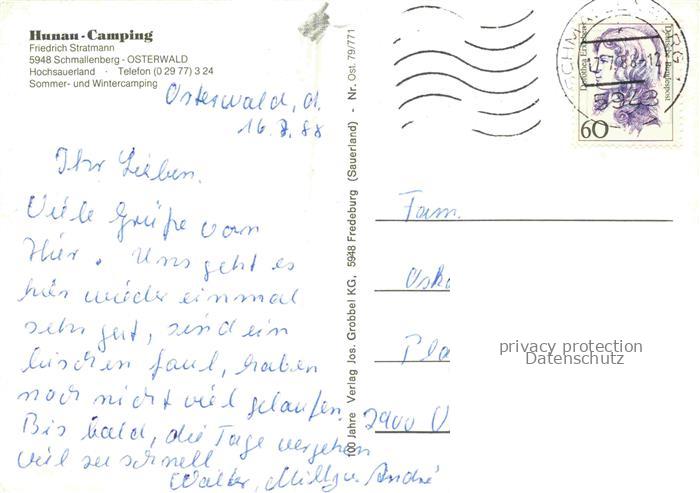 Hunau-Camping
Friedrich Stratmann
5948 Schmallenberg - OSTERWALD
Hochsauerland · Telefon (0 29 77) 3 24
Sommer- und Wintercamping
Osterwald, d.
16.7.88
Ihr Lieben.
Viele Grüße von
Hier. Uns geht es
hier wieder einmal
sehr gut, sind ein
bischen faul, haben
noch nicht viel gelaufen.
Bis bald, die Tage vergehen
viel zu schnell
Walter, André
100 Jahre Verlag Jos. Grobbel KG, 5948 Fredeburg (Sauerland) - Nr. Ost. 79/771
SCHMALLENBERG
5948
Dorothea Erxleben
Deutsche Bundespost
60
Fam.
Osk
Pla
2900 O
privacy protection
Datenschutz